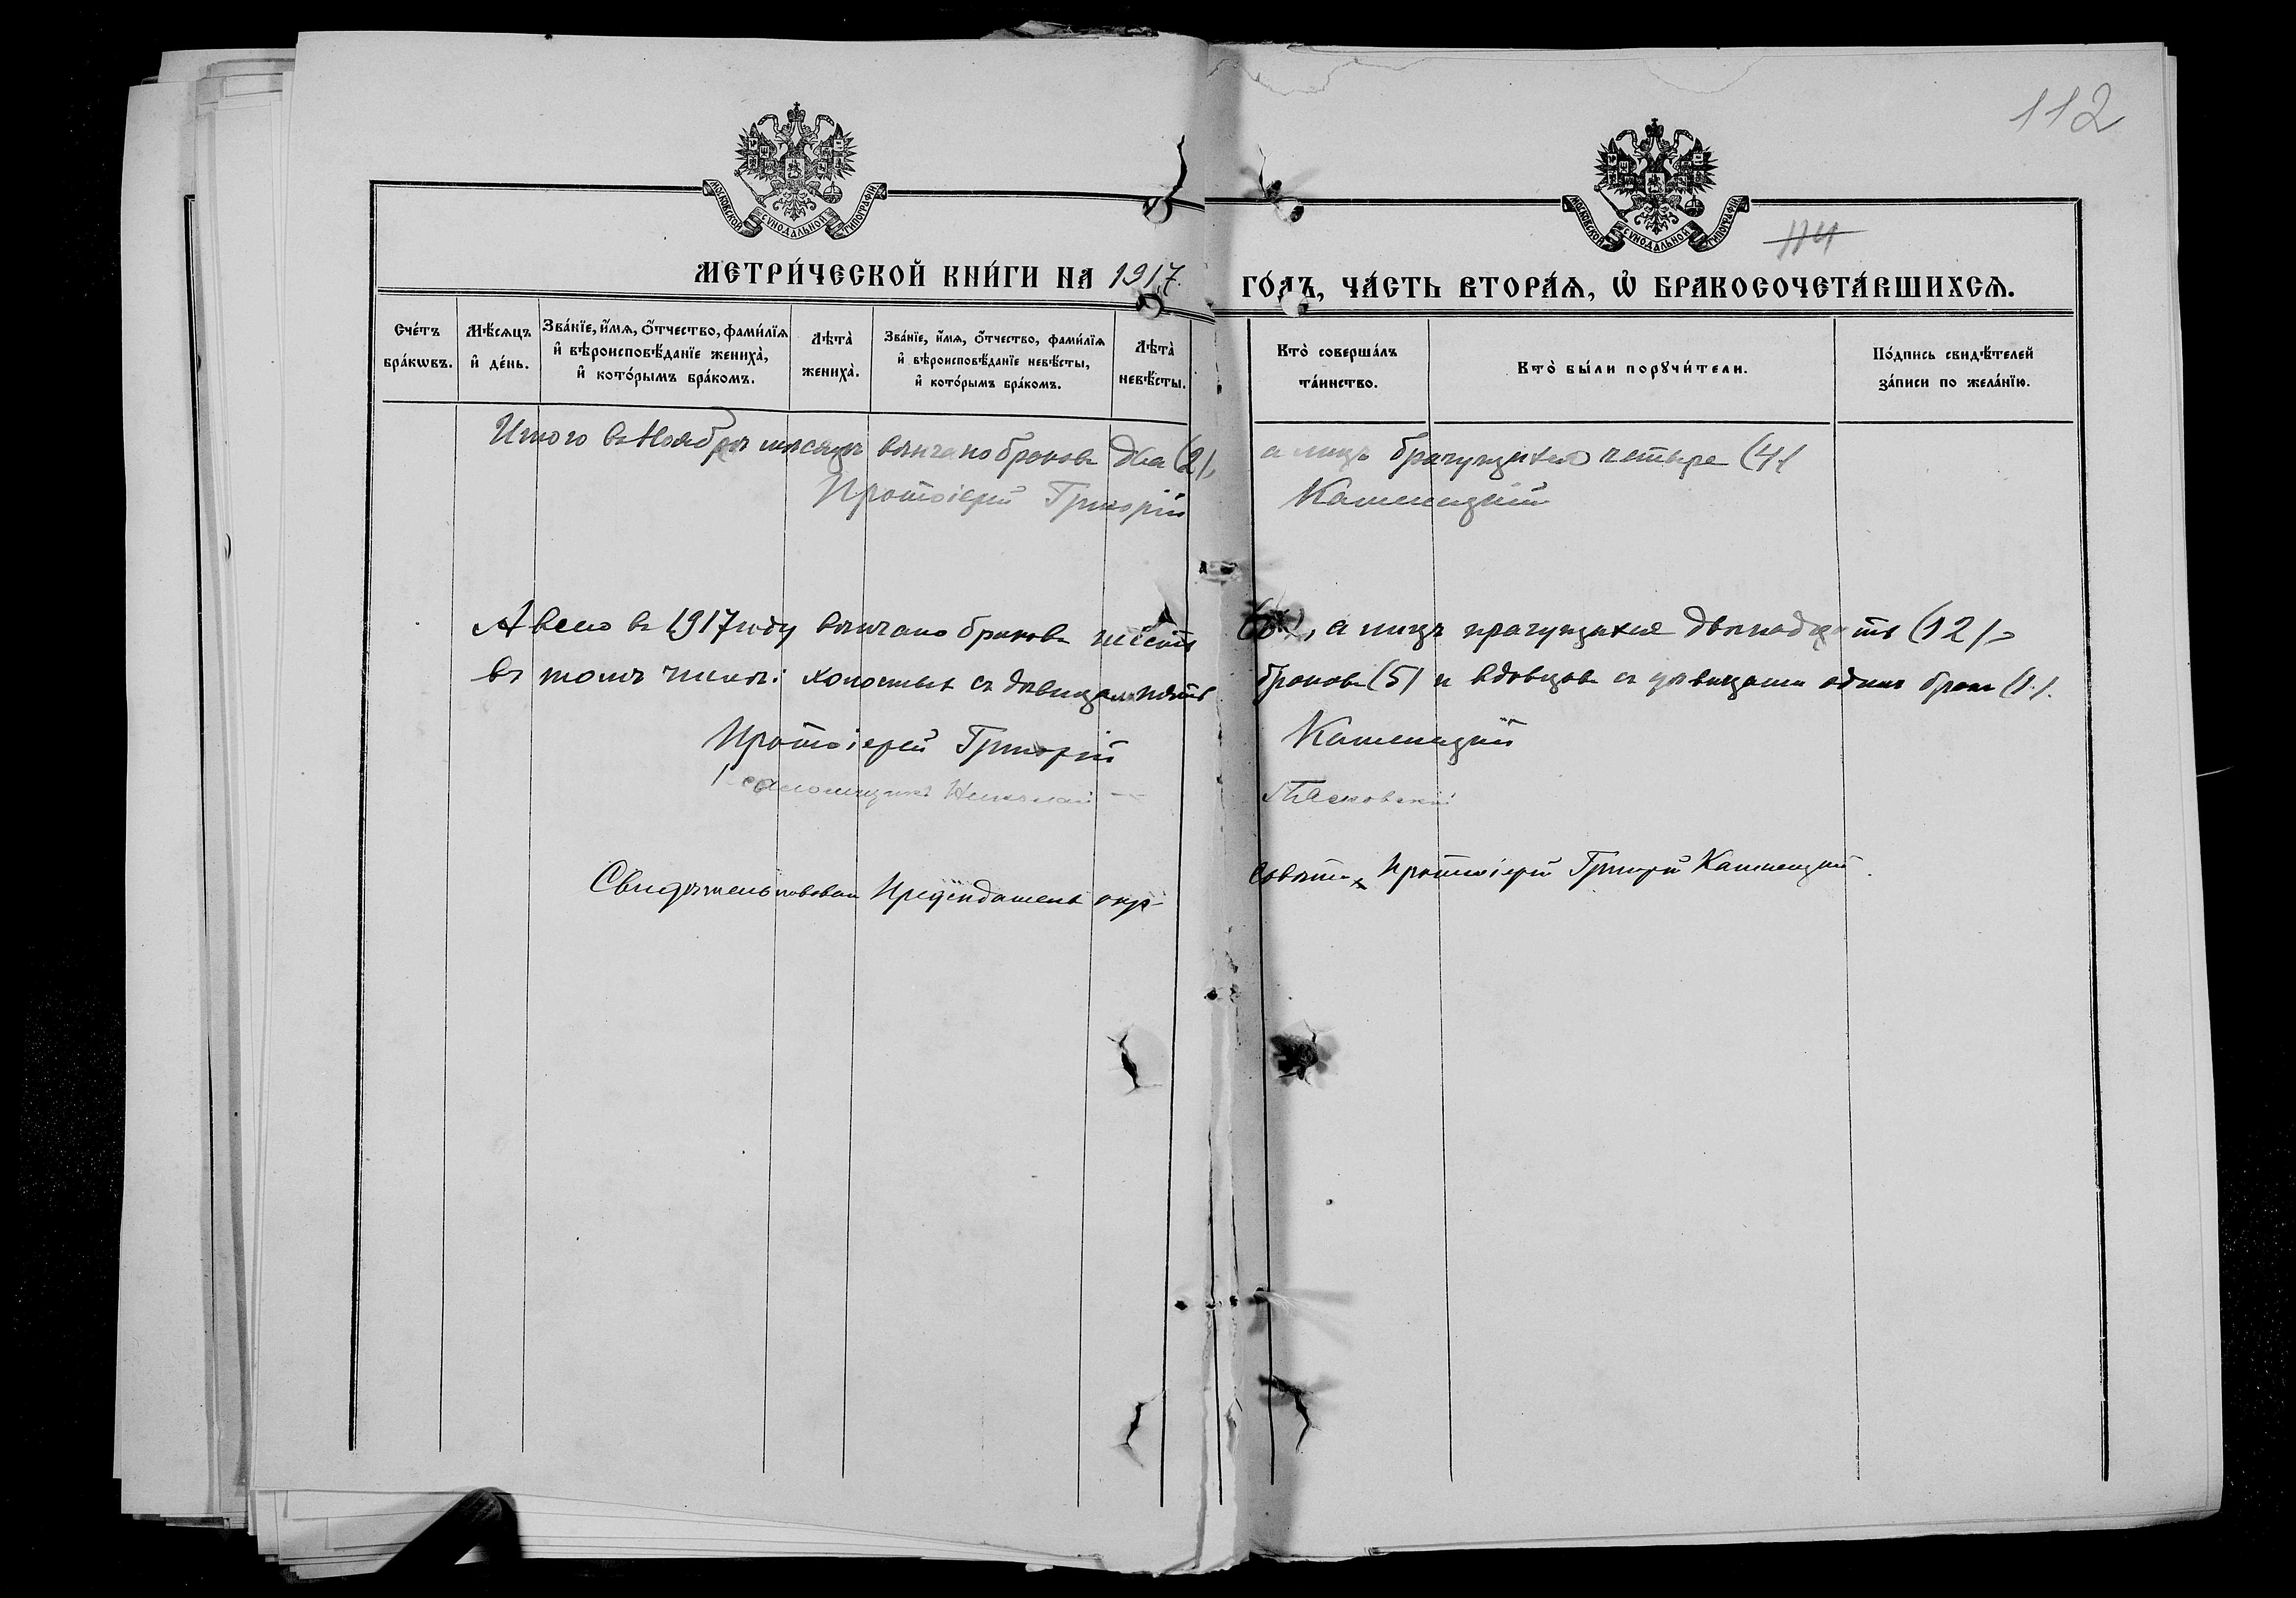 112
МОСКОВСКОЙ СѴНОДАЛЬНОЙ ТИПОГРАФІИ
МОСКОВСКОЙ СѴНОДАЛЬНОЙ ТИПОГРАФІИ
114
МЕТРИ́ЧЕСКОЙ КНИ́ГИ НА 1917 ГО́ДЪ, ЧА́СТЬ ВТОРА́Ѧ, Ѽ БРАКОСОЧЕТА́ВШИХСѦ.
Сче́тъ
бра́кѡвъ.
Мѣ́сѧцъ
и҆ де́нь.
Зва́нїе, и҆́мѧ, ѻ҆́тчество, фами́лїѧ
и҆ вѣроисповѣ́данїе жениха̀,
и҆ кото́рымъ бра́комъ.
Лѣта̀
жениха̀.
Зва́нїе, и҆́мѧ, ѻ҆́тчество, фами́лїѧ
и҆ вѣроисповѣ́данїе невѣ́сты,
и҆ кото́рымъ бра́комъ.
Лѣта̀
невѣ́сты.
Кто̀ соверша́лъ
та́инство.
Кто̀ бы́ли порꙋчи́тели.
По́дпись свидѣ́телей
за́писи по жела́нїю.
Итого въ Ноябрѣ мѣсяцѣ вѣнчано браковъ два (2), а лицъ брачущихся четыре (4)
Протоіерей Григорій Каменецкій
А всего въ 1917 году вѣнчано браковъ шесть (6), а лицъ брачущихся двѣнадцать (12),
въ томъ числѣ: холостыхъ съ дѣвицами пять браковъ (5) и вдовцовъ съ дѣвицами одинъ бракъ (1).
Протоіерей Григорій Каменецкій
Псаломщикъ Николай
Свидѣтельствовалъ Предсѣдатель окр. Совѣта, Протоіерей Григорій Каменецкій.